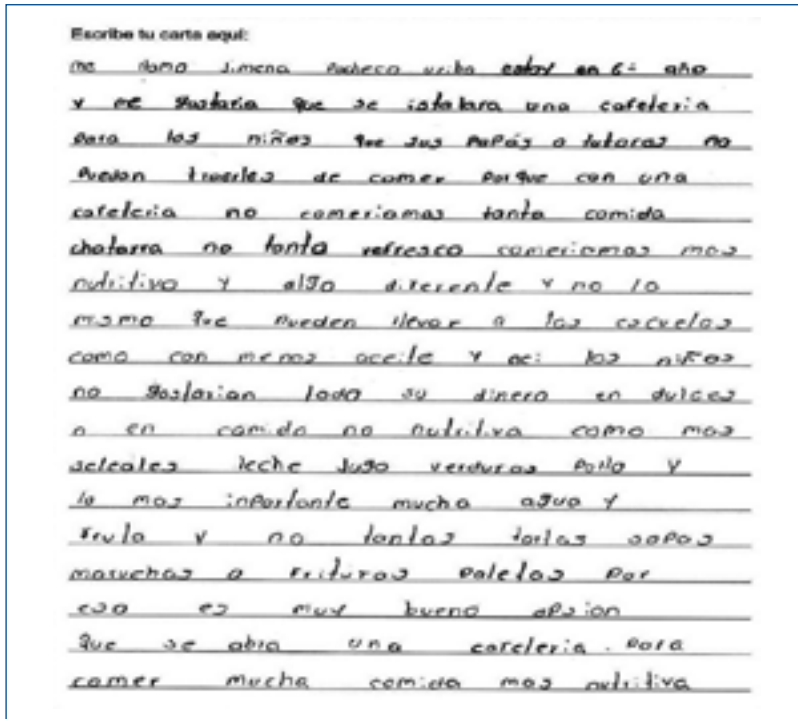 Escribe tu carta aquí:
me llamo Jimena Pacheco uribe estoy en 6º año
y me gustaria que se istalara una cafeteria
para los niños que sus papás o tutoras no
puedan traerles de comer porque con una
cafeteria no comeriamos tanta comida
chatarra no tanto refresco comeriamos mas
nutritivo y algo diferente y no lo
mismo que pueden llevar a las escuelas
como con menos aceite y asi los niños
no gastarian todo su dinero en dulces
o en comida no nutritiva como mas
seleales leche Jugo verduras pollo y
lo mas inportante mucha agua y
fruta y no tantas tortas sopas
maruchas o frituras paletas por
eso es muy buena opsion
que se abra una cafeteria. para
comer mucha comida mas nutritiva